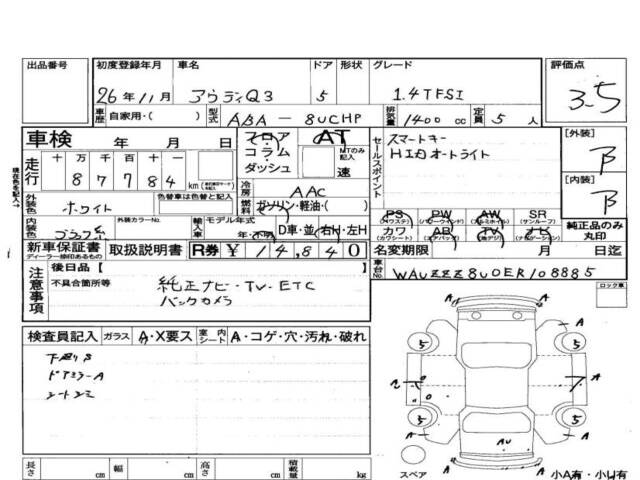 出品番号 初度登録年月 車名 ドア 形状 グレード 評価点
26年11月 アウディQ3 5 1.4TFSI 3.5
車歴 自家用・( ) 型式 ABA-8UCHP 排気量 1400 cc 定員 5 人
車検 年 月 日 フロア AT スマートキー [外装]
コラム MTのみ記入 HID オートライト B
現在色を記入→ 走行 十 万 千 百 十 一 ダッシュ 速 セールスポイント [内装]
8 7 7 8 4 km 冷房 AAC B
外装色 ホワイト 色替車は色替と記入 燃料 ガソリン・軽油・( )
PS (パワステ) PW (パワーウインドウ) AW (アルミホイル) SR (サンルーフ) 純正品のみ丸印
内装色 ブラック系 外装カラーNo. 輸入車 モデル年式 年・不明 D車・並 右H・左H カワ (カワシート) AB TV (地デジ) ナビ
新車保証書 ディーラー捺印あるもの 取扱説明書 R券 ¥ 14,840 名変期限 月 日迄
注意事項 後日品【 】 車台No. WAUZZZ8U0ER108885
不具合箇所等 純正ナビ・TV・ETC ロック車
バックカメラ
検査員記入 ガラス A・X要ス 室内シート A・コゲ・穴・汚れ・破れ
ドアミラーA
A A
5 5
A A
5 5
A A
AU
A
スペア 小A有・小U有
長さ cm 幅 cm 高さ cm 積載量 kg